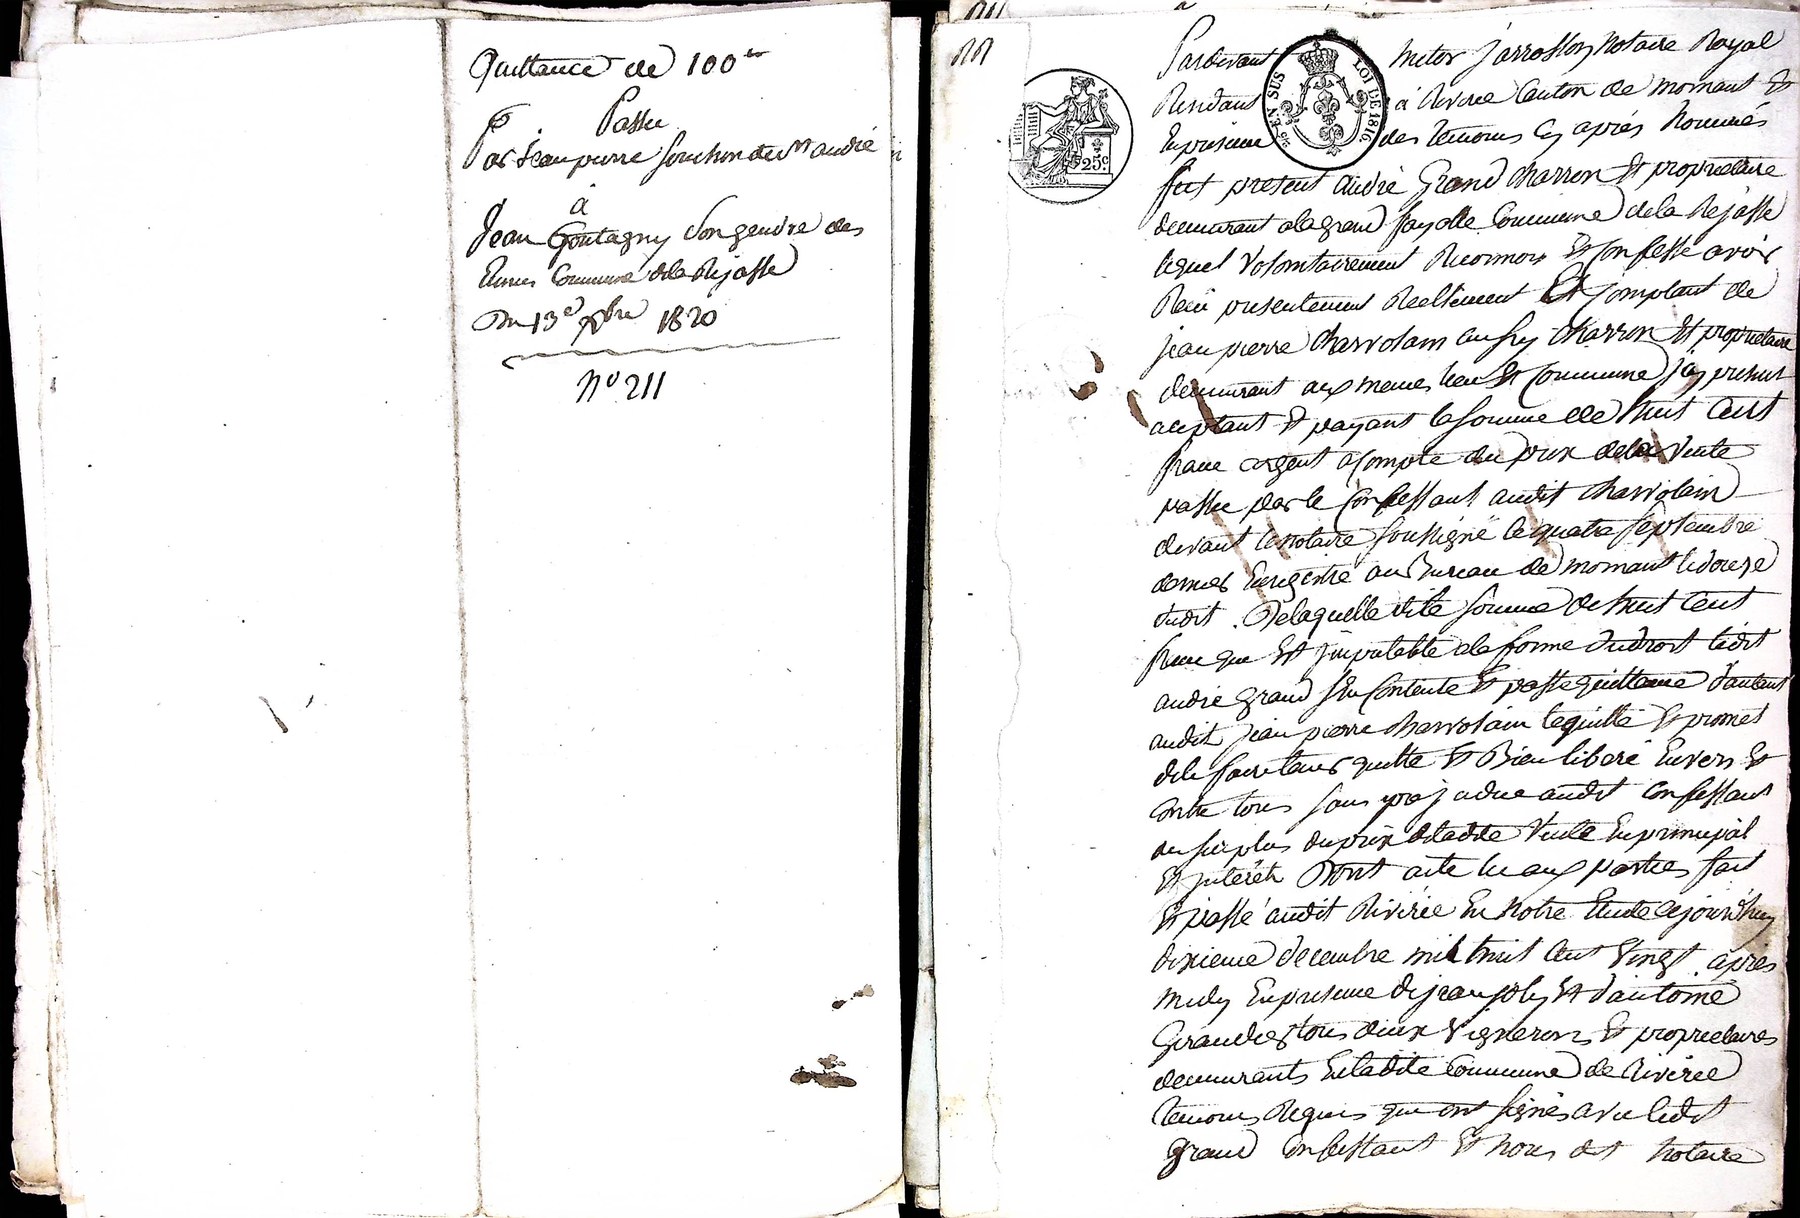 Quittance de 100
Passée
Par Jean pierre souchon de St andré
à
Jean Goutagny Son gendre des
Commune de la Rajasse
Du 13e Xbre 1820
N° 211
211
Pardevant Jarrosson Notaire Royal
Residant à Riverie Canton de mornant Et
En presence des temoins Cy après Nommés
EN SUS
LOI DE 1816
25c
fut présent André Grand charron Et propriétaire
demeurant a la grand fayolle Commune de la Rajasse
lequel Volontairement Reconnoit Et Confesse avoir
Reçu presentement Reellement Et Comptant de
jean pierre charvolain aussy charron Et propriétaire
demeurant aux memes lieu Et Commune jcy présent
acceptant Et payant la somme de huit Cent
franc argent acompte du prix de la Vente
passée par le Confessant audit charvolain
devant le notaire soussigné le quatre septembre
dernier Enregistré au Bureau de mornant le douze
dudit . De laquelle dite somme de huit Cent
franc que Et jmputable de forme du droit ledit
andré grand s'en Contente Et passe quittance d'autant
audit jean pierre charvolain le quitte Et promet
de le faire tenir quitte Et Bien liberé Envers Et
contre tous sans préjudice audit Confessant
du surplus du prix de ladite Vente En principal
Et jnterêts Dont acte lu aux parties fait
Et passé audit Riverie En Notre Etude Cejourd'huy
dixieme decembre mil huit Cent Vingt après
midy En presence de jean joly Et d'antoine
Giraudier tous deux Vignerons Et proprietaires
demeurants En ladite Commune de Riverie
temoins Requis qui ont signés avec ledit
grand Confessant Et nous dit Notaire